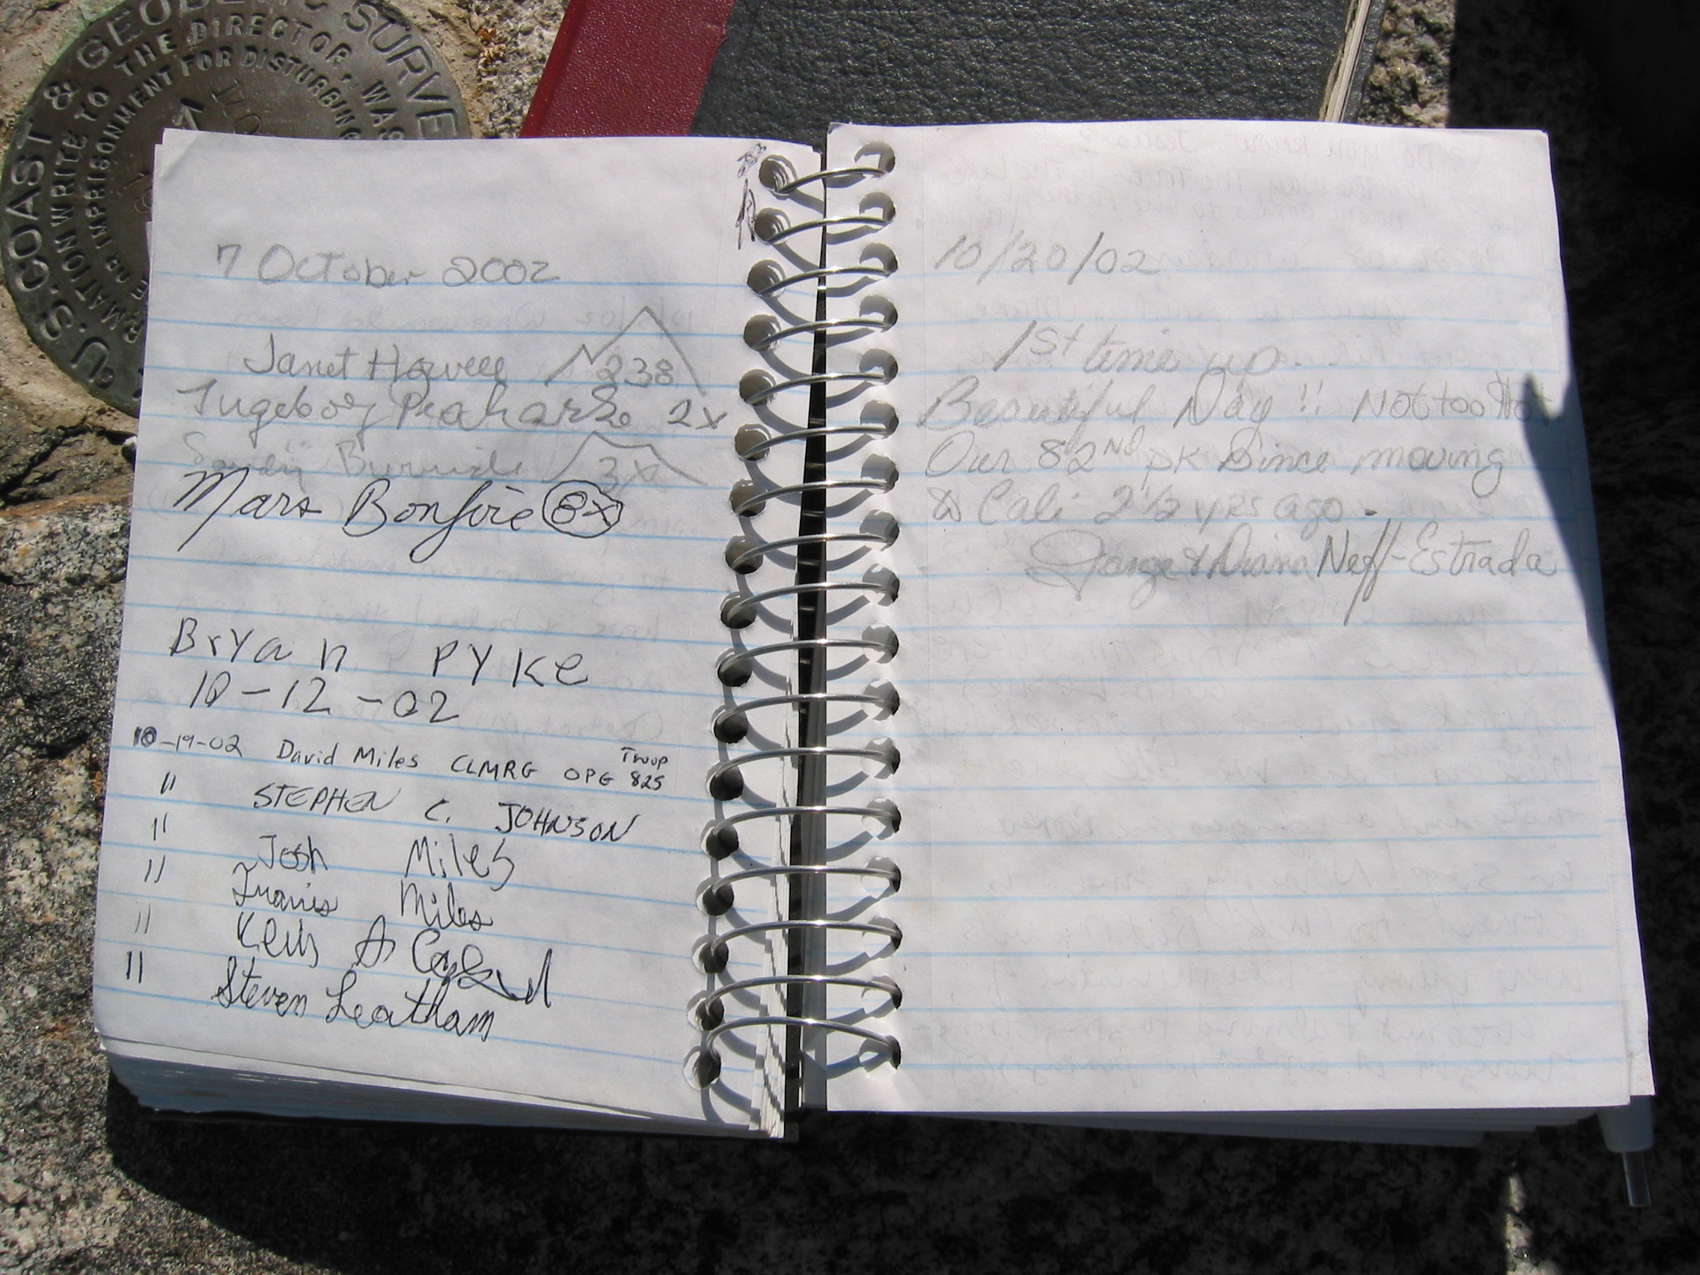 U.S. COAST & GEODETIC SURVE
RMATION WRITE TO THE DIRECTOR WAS
IMPRISONMENT FOR DISTURBING
7 October 2002
Janet Howell 238
Ingeborg 2x
Sandy Burnside 3x
Mars Bonfire 8x
Bryan PYKe
10-12-02
10-19-02 David Miles CLMRG OPG Troop 825
" STEPHEN C. JOHNSON
" Josh Miles
" Travis Miles
"
" Steven Leatham
10/20/02
1st time up..
Beautiful Day!! Not too Hot
Our 82nd pk Since moving
to Cali 2 1/2 yrs ago.
Jorge & Diana Neff-Estrada